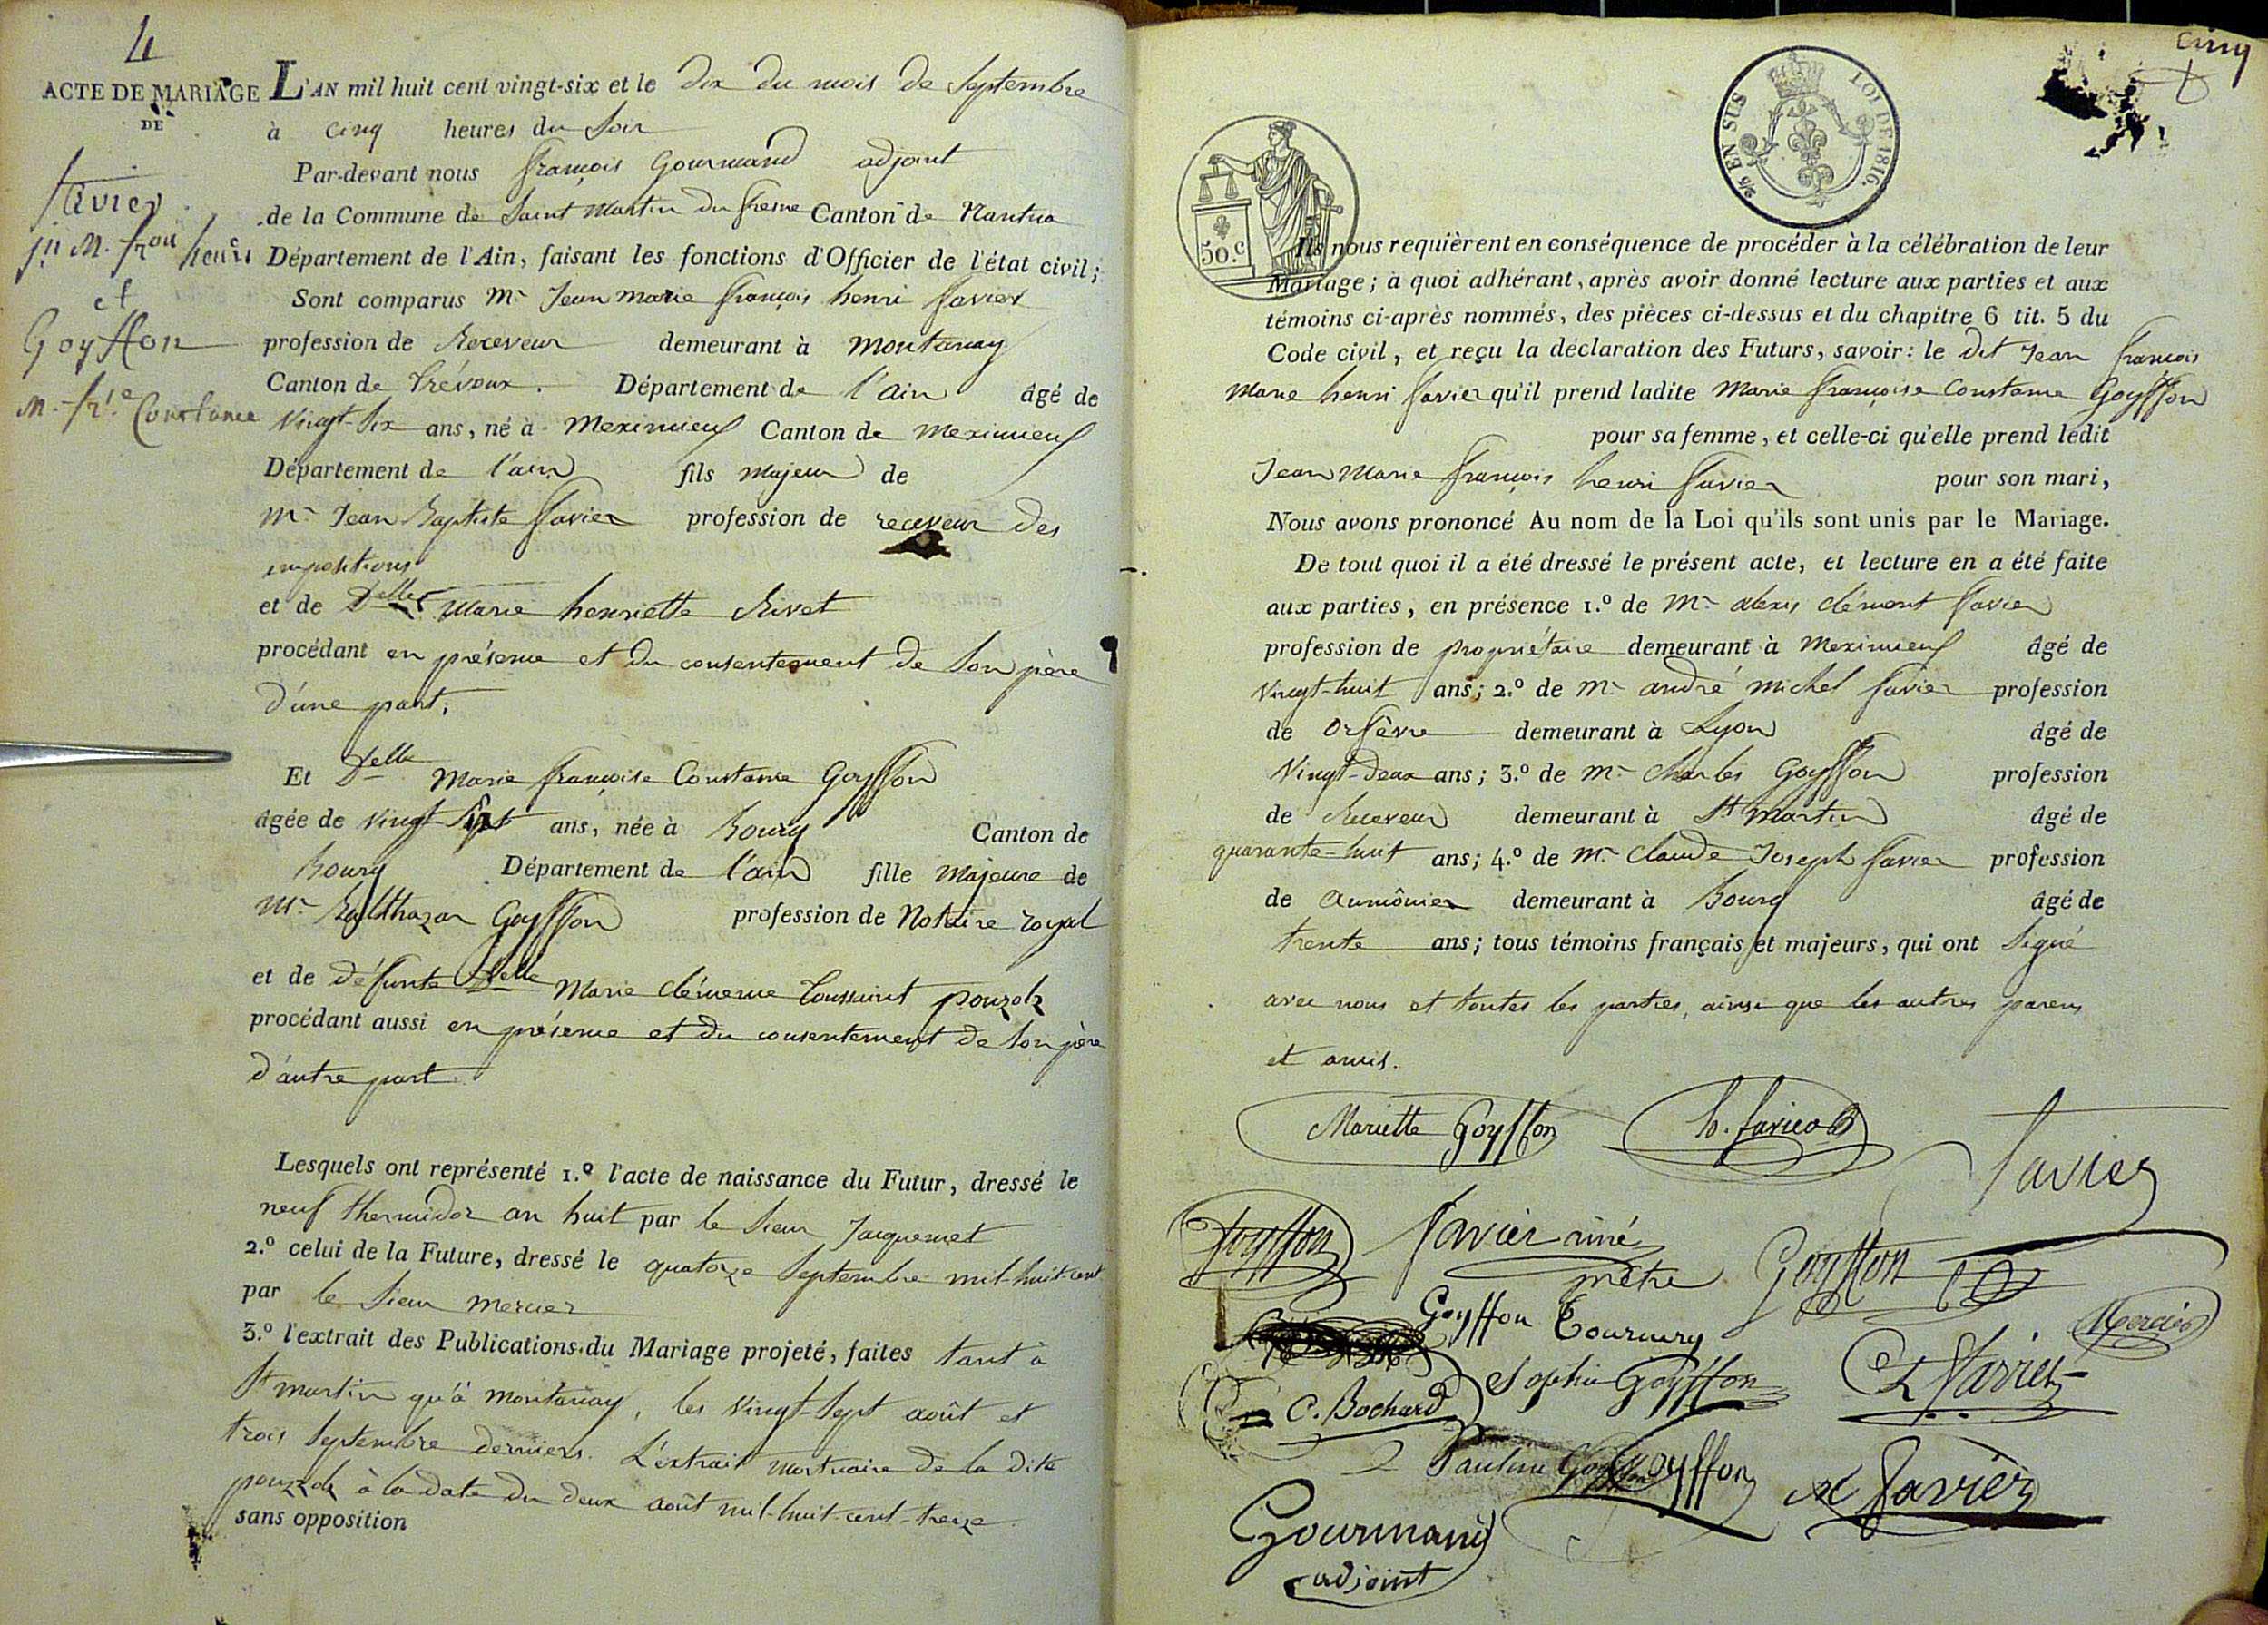 4
ACTE DE MARIAGE
DE
favier
jn M. frois henri
et
Goyffon
M. frse Constance
L'AN mil huit cent vingt-six et le dix du mois de Septembre
à cinq heures du Soir
Par-devant nous françois Gourmand adjoint
de la Commune de Saint Martin du fresne Canton de Nantua
Département de l'Ain, faisant les fonctions d'Officier de l'état civil;
Sont comparus Mr Jean marie françois henri favier
profession de Receveur demeurant à Montanay
Canton de Trévoux. Département de l'ain âgé de
Vingt-six ans, né à Meximieux Canton de meximieux
Département de l'ain fils majeur de
Mr Jean Baptiste favier profession de receveur des
impositions
et de Delle Marie henriette Rivet
procédant en présence et du consentement de Son père
d'une part,
Et Delle Marie françoise Constance Goyffon
âgée de vingt six ans, née à Bourg Canton de
Bourg Département de l'ain fille majeure de
Mr Balthazar Goyffon profession de Notaire royal
et de défunte Delle Marie clémence Toussaint pouzolz
procédant aussi en présence et du consentement de Son père
d'autre part
Lesquels ont représenté 1.º l'acte de naissance du Futur, dressé le
neuf thermidor an huit par le Sieur Jacquemet
2.º celui de la Future, dressé le quatorze Septembre mil-huit-cent
par le Sieur mercier
3.º l'extrait des Publications du Mariage projeté, faites tant à
St martin qu'à montanay, les vingt-Sept août et
trois Septembre derniers. L'extrait mortuaire de la dite
pouzolz à la date du deux août mil-huit-cent-treize
sans opposition
cinq
50.c
2/5 EN SUS
LOI DE 1816.
Ils nous requièrent en conséquence de procéder à la célébration de leur
Mariage; à quoi adhérant, après avoir donné lecture aux parties et aux
témoins ci-après nommés, des pièces ci-dessus et du chapitre 6 tit. 5 du
Code civil, et reçu la déclaration des Futurs, savoir: le dit Jean françois
Marie henri favier qu'il prend ladite Marie françoise Constance Goyffon
pour sa femme, et celle-ci qu'elle prend ledit
Jean Marie françois henri favier pour son mari,
Nous avons prononcé Au nom de la Loi qu'ils sont unis par le Mariage.
De tout quoi il a été dressé le présent acte, et lecture en a été faite
aux parties, en présence 1.º de Mr alexis clément favier
profession de propriétaire demeurant à Meximieux âgé de
Vingt-huit ans; 2.º de Mr andré michel favier profession
de Orfèvre demeurant à Lyon âgé de
Vingt-deux ans; 3.º de Mr charles Goyffon profession
de Receveur demeurant à St Martin âgé de
quarante-huit ans; 4.º de Mr Claude Joseph favier profession
de Aumônier demeurant à Bourg âgé de
trente ans; tous témoins français et majeurs, qui ont Signé
avec nous et toutes les parties, ainsi que les autres parens
et amis.
Mariette Goyffon h. favier
favier
Goyffon favier ainé Goyffon
Goyffon Tournery Mercier
C. Bochard Sophie Goyffon favier
Pauline Goyffon favier
Gourmand
adjoint